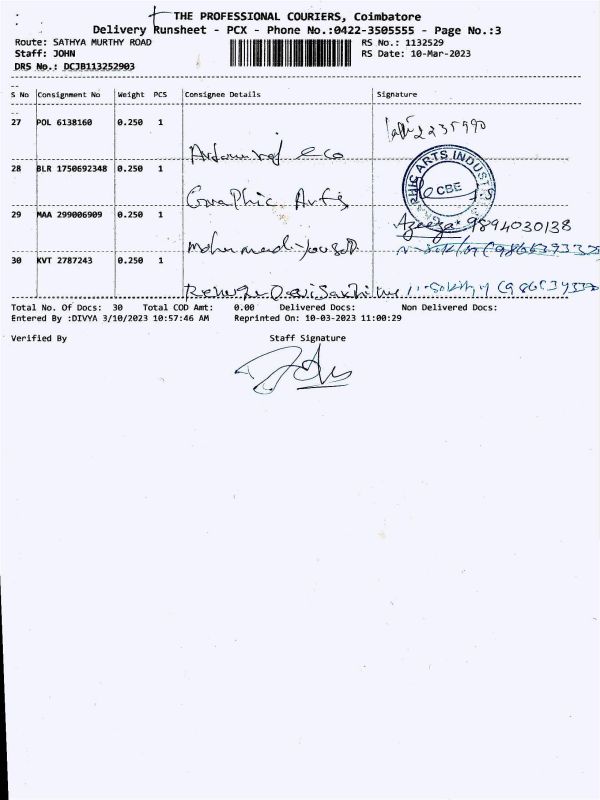 THE PROFESSIONAL COURIERS, Coimbatore
Delivery Runsheet - PCX - Phone No.:0422-3505555 - Page No.:3
Route: SATHYA MURTHY ROAD RS No.: 1132529
Staff: JOHN RS Date: 10-Mar-2023
DRS No.: DCJB113252903
S No Consignment No Weight PCS Consignee Details Signature
27 POL 6138160 0.250 1
eco
28 BLR 1750692348 0.250 1
Graphic Arts
GRAPHIC ARTS INDUSTRIES CBE
29 MAA 299006909 0.250 1
Azeeza 9894030138
30 KVT 2787243 0.250 1
Total No. Of Docs: 30 Total COD Amt: 0.00 Delivered Docs: Non Delivered Docs:
Entered By :DIVYA 3/10/2023 10:57:46 AM Reprinted On: 10-03-2023 11:00:29
Verified By Staff Signature